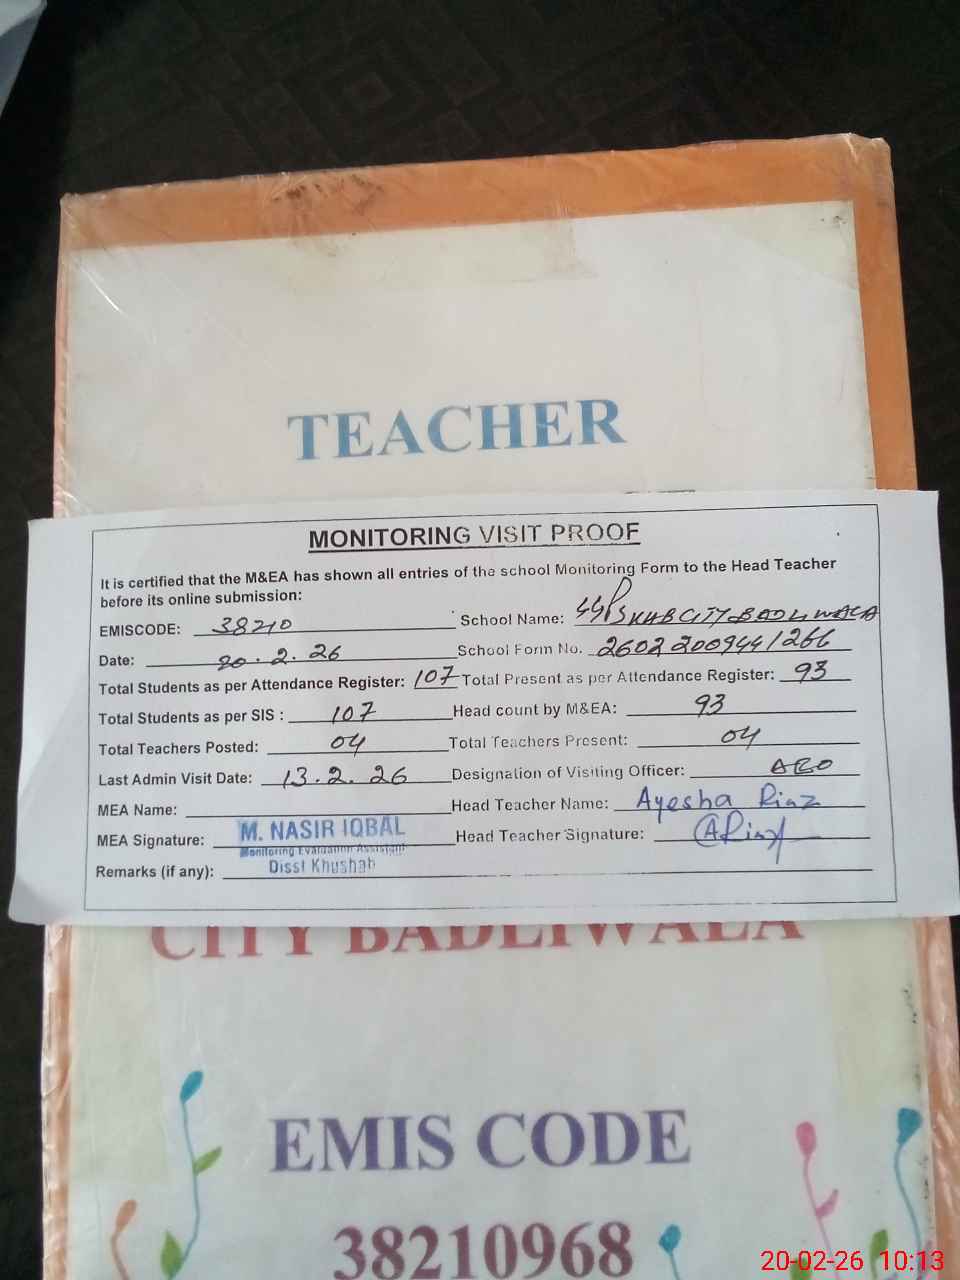 TEACHER
MONITORING VISIT PROOF
It is certified that the M&EA has shown all entries of the school Monitoring Form to the Head Teacher
before its online submission:
EMISCODE: 38210 School Name: GGPS KHB CITY BADLIWALA
Date: 20.2.26 School Form No. 26022009441266
Total Students as per Attendance Register: 107 Total Present as per Attendance Register: 93
Total Students as per SIS : 107 Head count by M&EA: 93
Total Teachers Posted: 04 Total Teachers Present: 04
Last Admin Visit Date: 13.2.26 Designation of Visiting Officer: AEO
MEA Name: Head Teacher Name: Ayesha Riaz
MEA Signature: M. NASIR IQBAL Head Teacher Signature: ARiaz
Monitoring Evaluation Assistant
Disst Khushab
Remarks (if any):
CITY BADLIWALA
EMIS CODE
38210968
20-02-26 10:13